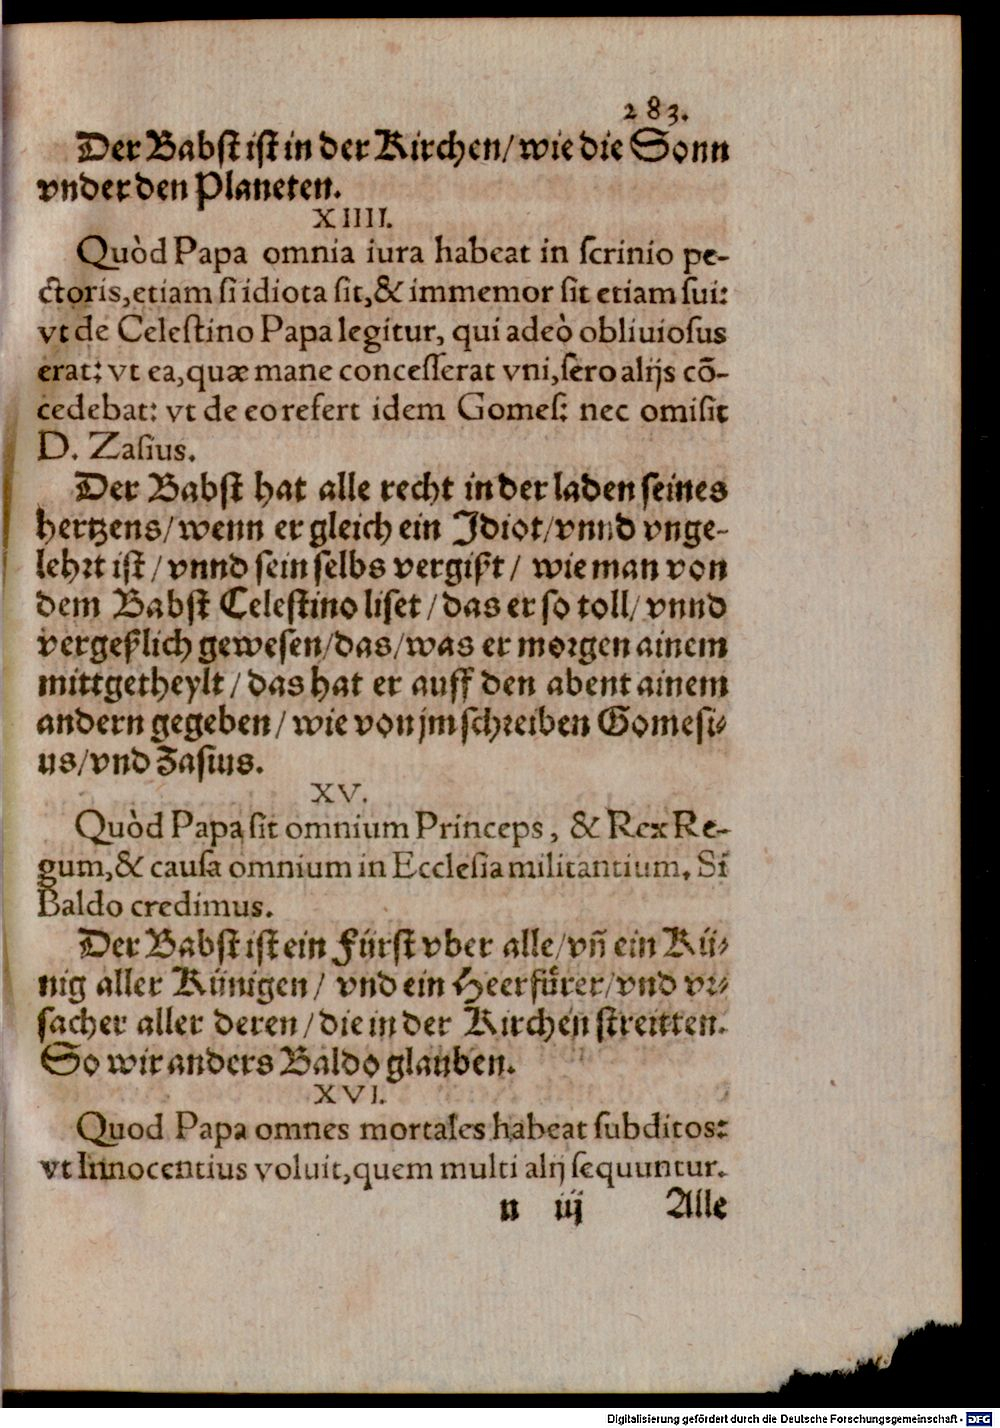 283.
Der Babſt iſt in der Kirchen/ wie die Sonn
vnder den Planeten.
XIIII.
Quòd Papa omnia iura habeat in ſcrinio pe-
ctoris, etiam ſi idiota ſit, & immemor ſit etiam ſui:
vt de Celeſtino Papa legitur, qui adeò obliuioſus
erat: vt ea, quæ mane conceſſerat vni, ſero alijs cõ-
cedebat: vt de eo refert idem Gomeſ: nec omiſit
D. Zaſius.
Der Babſt hat alle recht in der laden ſeines
hertzens/ wenn er gleich ein Idiot/ vnnd vnge-
lehrt iſt/ vnnd ſein ſelbs vergißt/ wie man von
dem Babſt Celeſtino liſet/ das er ſo toll/ vnnd
vergeßlich geweſen/ das/ was er morgen ainem
mittgetheylt/ das hat er auff den abent ainem
andern gegeben/ wie von jm ſchreiben Gomeſi-
us/ vnd Zaſius.
XV.
Quòd Papa ſit omnium Princeps, & Rex Re-
gum, & cauſa omnium in Eccleſia militantium. Si
Baldo credimus.
Der Babſt iſt ein Fürſt vber alle/ vñ ein Kü-
nig aller Künigen/ vnd ein Heerfuͤrer/ vnd vr-
ſacher aller deren/ die in der Kirchen ſtreitten.
So wir anders Baldo glauben.
XVI.
Quod Papa omnes mortales habeat ſubditos:
vt Innocentius voluit, quem multi alij ſequuntur.
n iij Alle
Digitalisierung gefördert durch die Deutsche Forschungsgemeinschaft - DFG